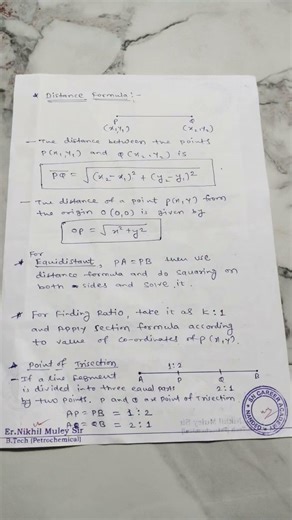 * Distance Formula:-
P Q
(x₁,y₁) (x₂,y₂)
- The distance between the points
P(x₁,y₁) and Q(x₂,y₂) is
PQ = √(x₂-x₁)² + (y₂-y₁)²
- The distance of a point P(x,y) from
the origin O(0,0) is given by
OP = √x²+y²
For
* Equidistant, PA=PB then use
distance formula and do squaring on
both sides and solve it.
* For Finding Ratio, take it as K:1
and Apply section formula according
to value of co-ordinates of P(x,y).
* Point of Trisection
1:2
- If a line segment
A P Q B
is divided into three equal parts
2:1
by two points, P and Q are point of trisection
AP=PB = 1:2
AQ=QB = 2:1
Er.Nikhil Muley Sir
B.Tech (Petrochemical)
SN CAREER ACADEMY